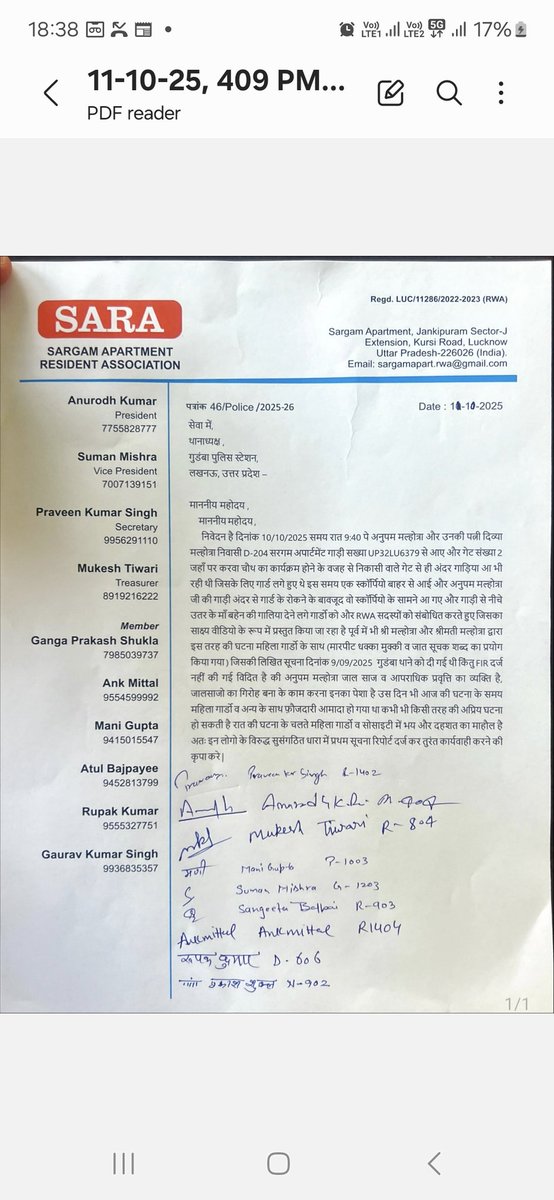 18:38
Vo)) LTE1 Vo)) LTE2 5G 17%
11-10-25, 409 PM...
PDF reader
Regd. LUC/11286/2022-2023 (RWA)
SARA
SARGAM APARTMENT
RESIDENT ASSOCIATION
Sargam Apartment, Jankipuram Sector-J
Extension, Kursi Road, Lucknow
Uttar Pradesh-226026 (India).
Email: sargamapart.rwa@gmail.com
Anurodh Kumar
President
7755828777
Suman Mishra
Vice President
7007139151
Praveen Kumar Singh
Secretary
9956291110
Mukesh Tiwari
Treasurer
8919216222
Member
Ganga Prakash Shukla
7985039737
Ank Mittal
9554599992
Mani Gupta
9415015547
Atul Bajpayee
9452813799
Rupak Kumar
9555327751
Gaurav Kumar Singh
9936835357
पत्रांक 46/Police /2025-26 Date : 11-10-2025
सेवा में,
थानाध्यक्ष ,
गुडंबा पुलिस स्टेशन,
लखनऊ, उत्तर प्रदेश –
माननीय महोदय ,
माननीय महोदय ,
निवेदन है दिनांक 10/10/2025 समय रात 9:40 पे अनुपम मल्होत्रा और उनकी पत्नी दिव्या
मल्होत्रा निवासी D-204 सरगम अपार्टमेंट गाड़ी सख्या UP32LU6379 से आए और गेट संख्या 2
जहाँ पर करवा चौथ का कार्यक्रम होने के वजह से निकासी वाले गेट से ही अंदर गाड़िया आ भी
रही थी जिसके लिए गार्ड लगे हुए थे इस समय एक स्कॉर्पियो बाहर से आई और अनुपम मल्होत्रा
जी की गाड़ी अंदर से गार्ड के रोकने के बाबजूद वो स्कॉर्पियो के सामने आ गए और गाड़ी से नीचे
उतर के माँ बहेन की गालिया देने लगे गार्डो को और RWA सदस्यों को संबोधित करते हुए जिसका
साक्ष्य वीडियो के रूप में प्रस्तुत किया जा रहा है पूर्व में भी श्री मल्होत्रा और श्रीमती मल्होत्रा द्वारा
इस तरह की घटना महिला गार्डो के साथ (मारपीट धक्का मुक्की व जात सूचक शब्द का प्रयोग
किया गया) जिसकी लिखित सूचना दिनांक 9/09/2025 गुडंबा थाने को दी गई थी किंतु FIR दर्ज
नहीं की गई विदित है की अनुपम मल्होत्रा जाल साज व आपराधिक प्रवृत्ति का व्यक्ति है,
जालसाजो का गिरोह बना के काम करना इनका पेशा है उस दिन भी आज की घटना के समय
महिला गार्डो व अन्य के साथ फ़ौजदारी आमादा हो गया था कभी भी किसी तरह की अप्रिय घटना
हो सकती है रात की घटना के चलते महिला गार्डो व सोसाइटी में भय और दहशत का माहोल है
अतः इन लोगो के विरुद्ध सुसंगठित धारा में प्रथम सूचना रिपोर्ट दर्ज कर तुरंत कार्यवाही करने की
कृपा करे|
Praveen Kr Singh R-1402
Mukesh Tiwari R-804
मनी Mani Gupta P-1003
Suman Mishra G-1203
Sangeeta R-903
Ankmittal Ankmittal R1404
रूपक कुमार D-606
गंगा प्रकाश शुक्ल N-902
1/1